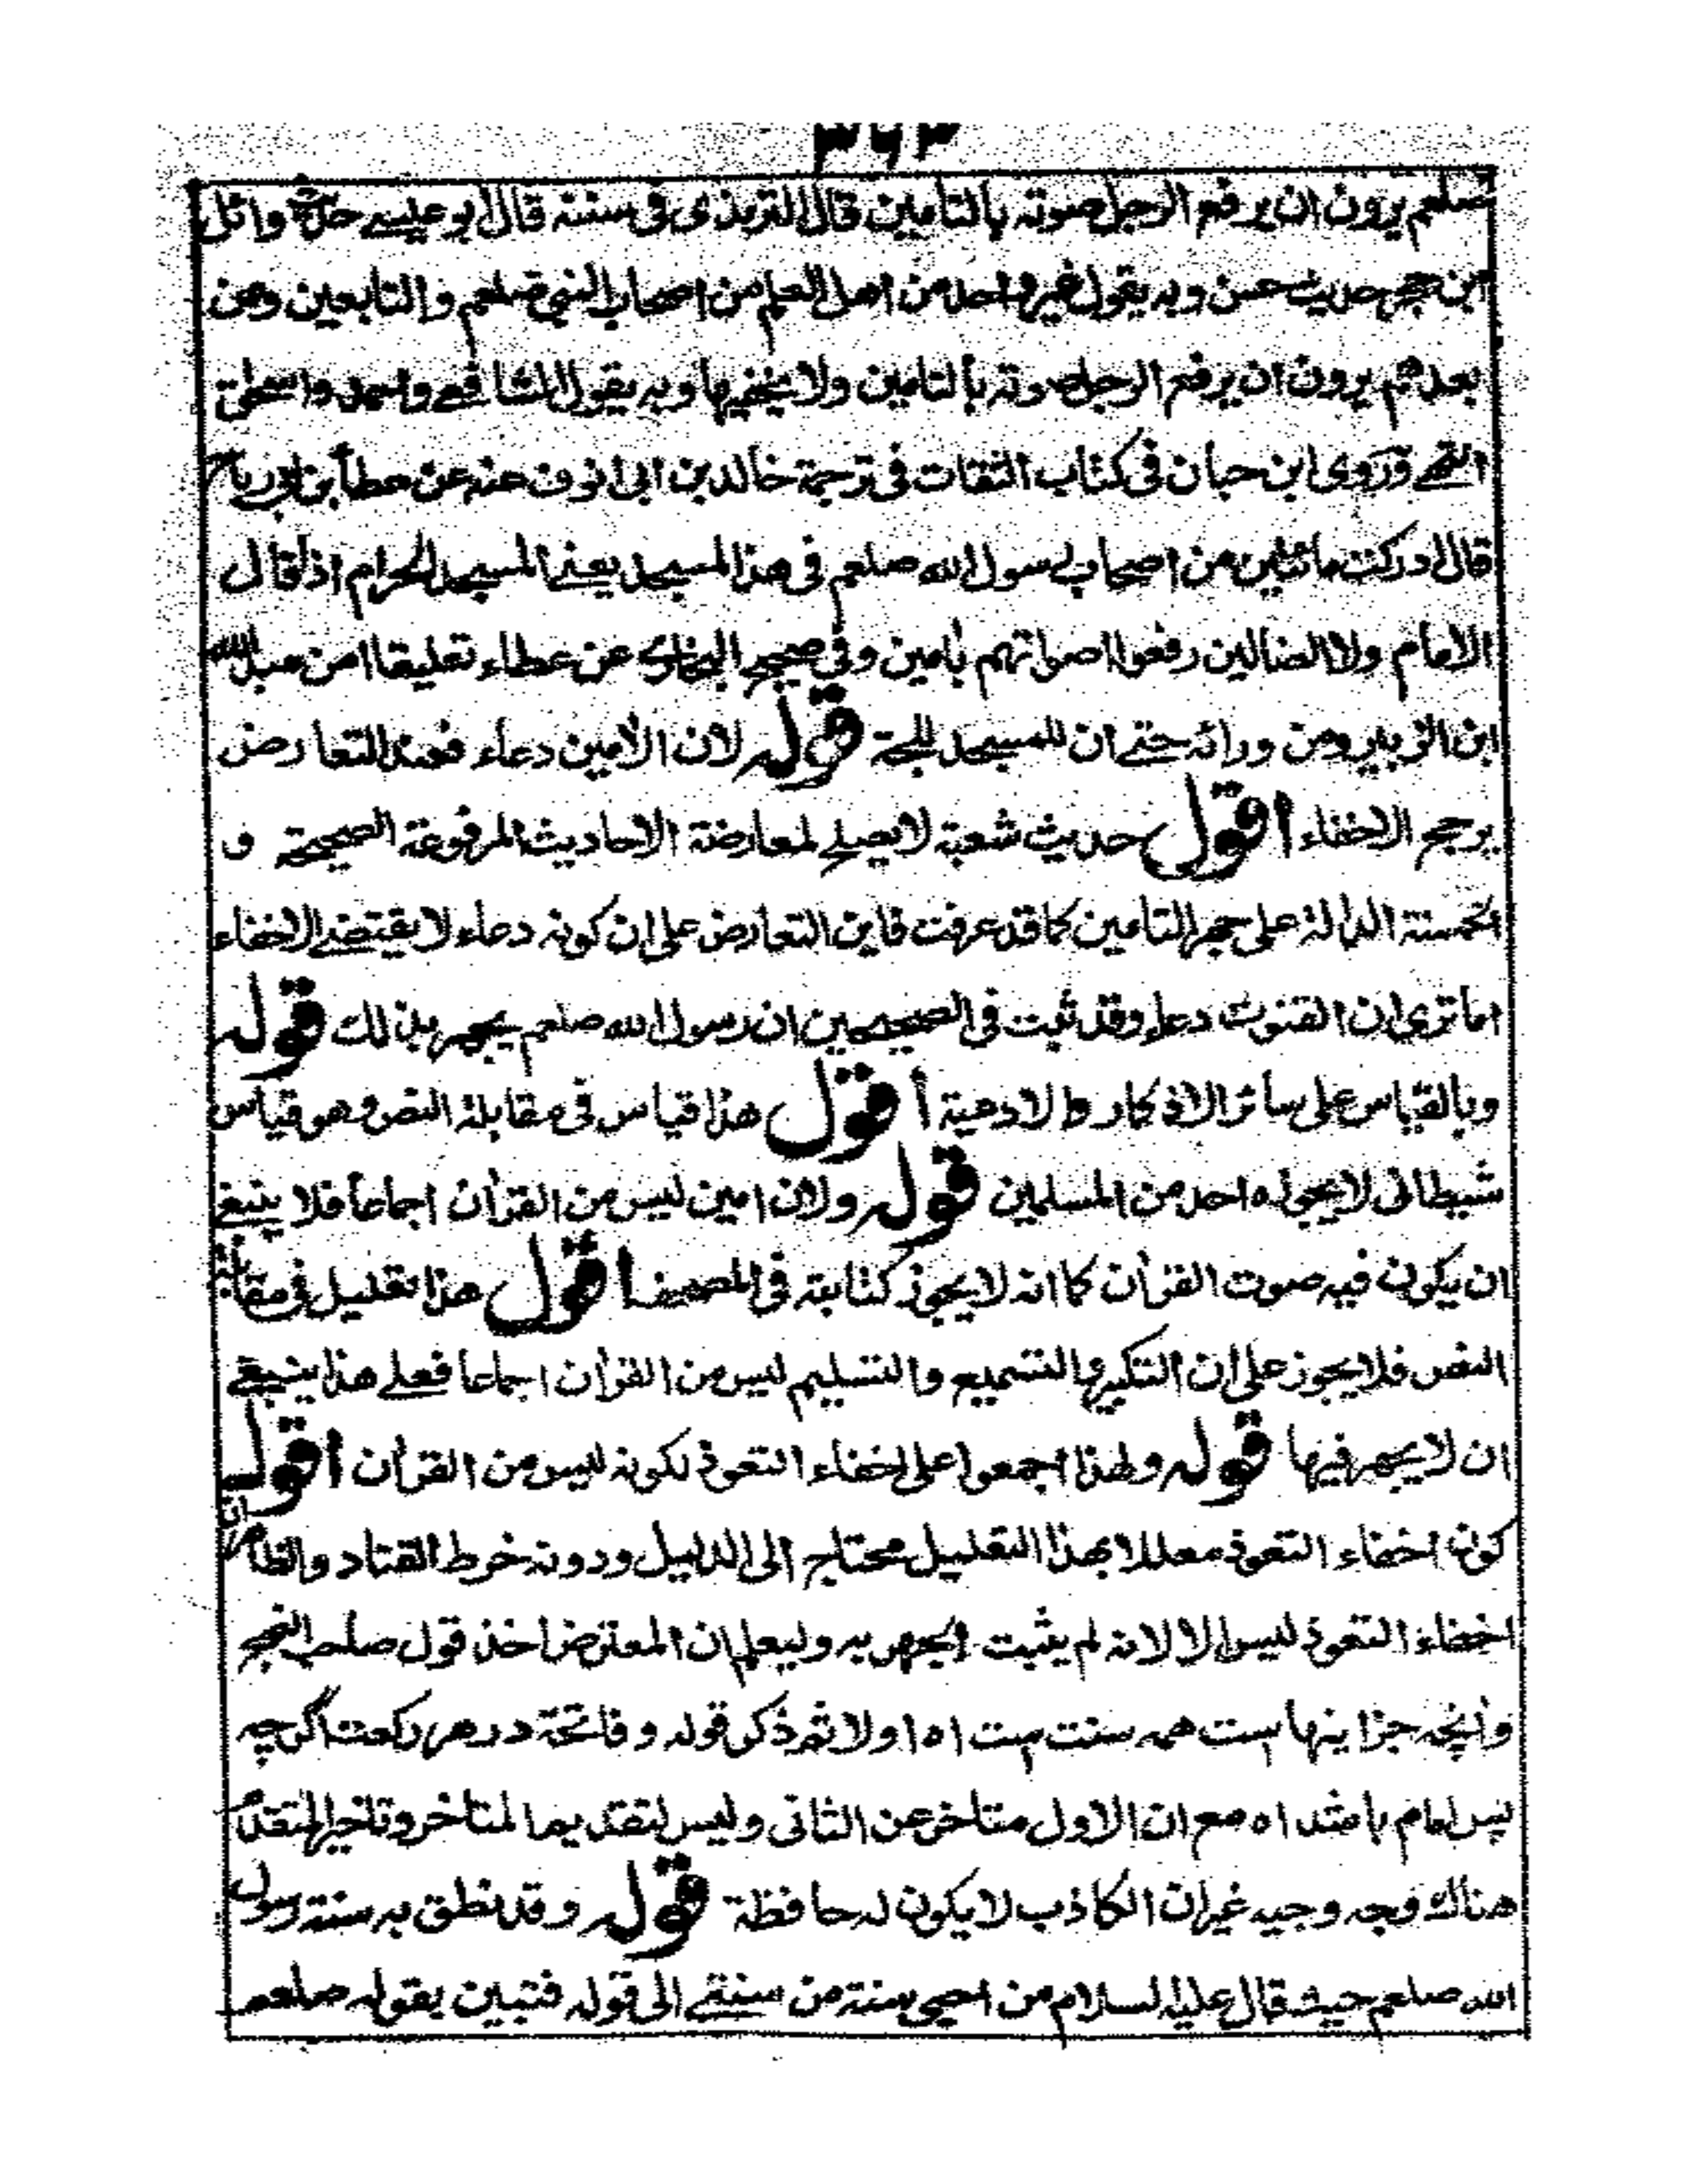 ٣٦٣
صلعم يرون ان يرفع الرجل صوته بالتامين قال الترمذى فى سننه قال ابو عيسے حديث وائل
ابن حجر حديث حسن وبه يقول غير واحد من اهل العلم من اصحاب النبي صلعم والتابعين ومن
بعدهم يرون ان يرفع الرجل صوته بالتامين ولا يخفيها وبه يقول الشافعے واحمد واسحٰق
انتهے وروى ابن حبان فى كتاب الثقات فى ترجمة خالد بن ابى نوف عنه عن عطأ بن ابى رباح
قال ادركت مائتين من اصحاب رسول الله صلعم فى هذا المسجد يعنے المسجد الحرام اذا قال
الامام ولا الضالين رفعوا اصواتهم بأمين وفى صحيح البخارى عن عطاء تعليقا امن عبد الله
ابن الزبير ومن ورائه حتے ان للمسجد للجة قوله لان الأمين دعاء فعند التعارض
يرجح الاخفاء اقول حديث شعبة لا يصلح لمعارضة الاحاديث المرفوعة الصحيحة و
الحسنة الدالة على جهر التامين كما قد عرفت فاين التعارض على ان كونه دعاء لا يقتضے الاخفاء
اما ترى ان القنوت دعاء وقد ثبت فى الصحيحين ان رسول الله صلعم يجهر بذلك قوله
وبالقياس على سائر الاذكار والادعية أقول هذا قياس فى مقابلة النص وهو قياس
شيطانى لا يجوزه احد من المسلمين قوله ولان امين ليس من القرأن اجماعا فلا ينبغے
ان يكون فيه صوت القرأن كما انه لا يجوز كتابته فى المصحف اقول هذا تعليل فى مقابلة
النص فلا يجوز على ان التكبير والتسميع والتسليم ليس من القرأن اجماعا فعلے هذا ينبغے
ان لا يجهر فيها قوله ولهذا اجمعوا على اخفاء التعوذ لكونه ليس من القرأن اقول
كون اخفاء التعوذ معللا بهذا التعليل محتاج الى الدليل ودونه خرط القتاد والظاهر ان
اخفاء التعوذ ليس الا لانه لم يثبت الجهر به وليعلم ان المعترض اخذ قول صاحب النهج
وانچه جز اينها است همه سنت ست اه اولا ثم ذكر قوله وفاتحة در هر ركعت اگرچه
پس امام باشد اه مع ان الاول متاخر عن الثانى وليس لتقديم المتاخر وتاخير المتقدم
هناك وجه وجيه غير ان الكاذب لا يكون له حافظة قوله وقد نطق به سنة رسول
الله صلعم حيث قال عليه السلام من احيى سنة من سنتے الى قوله فتبين بقوله صلعم